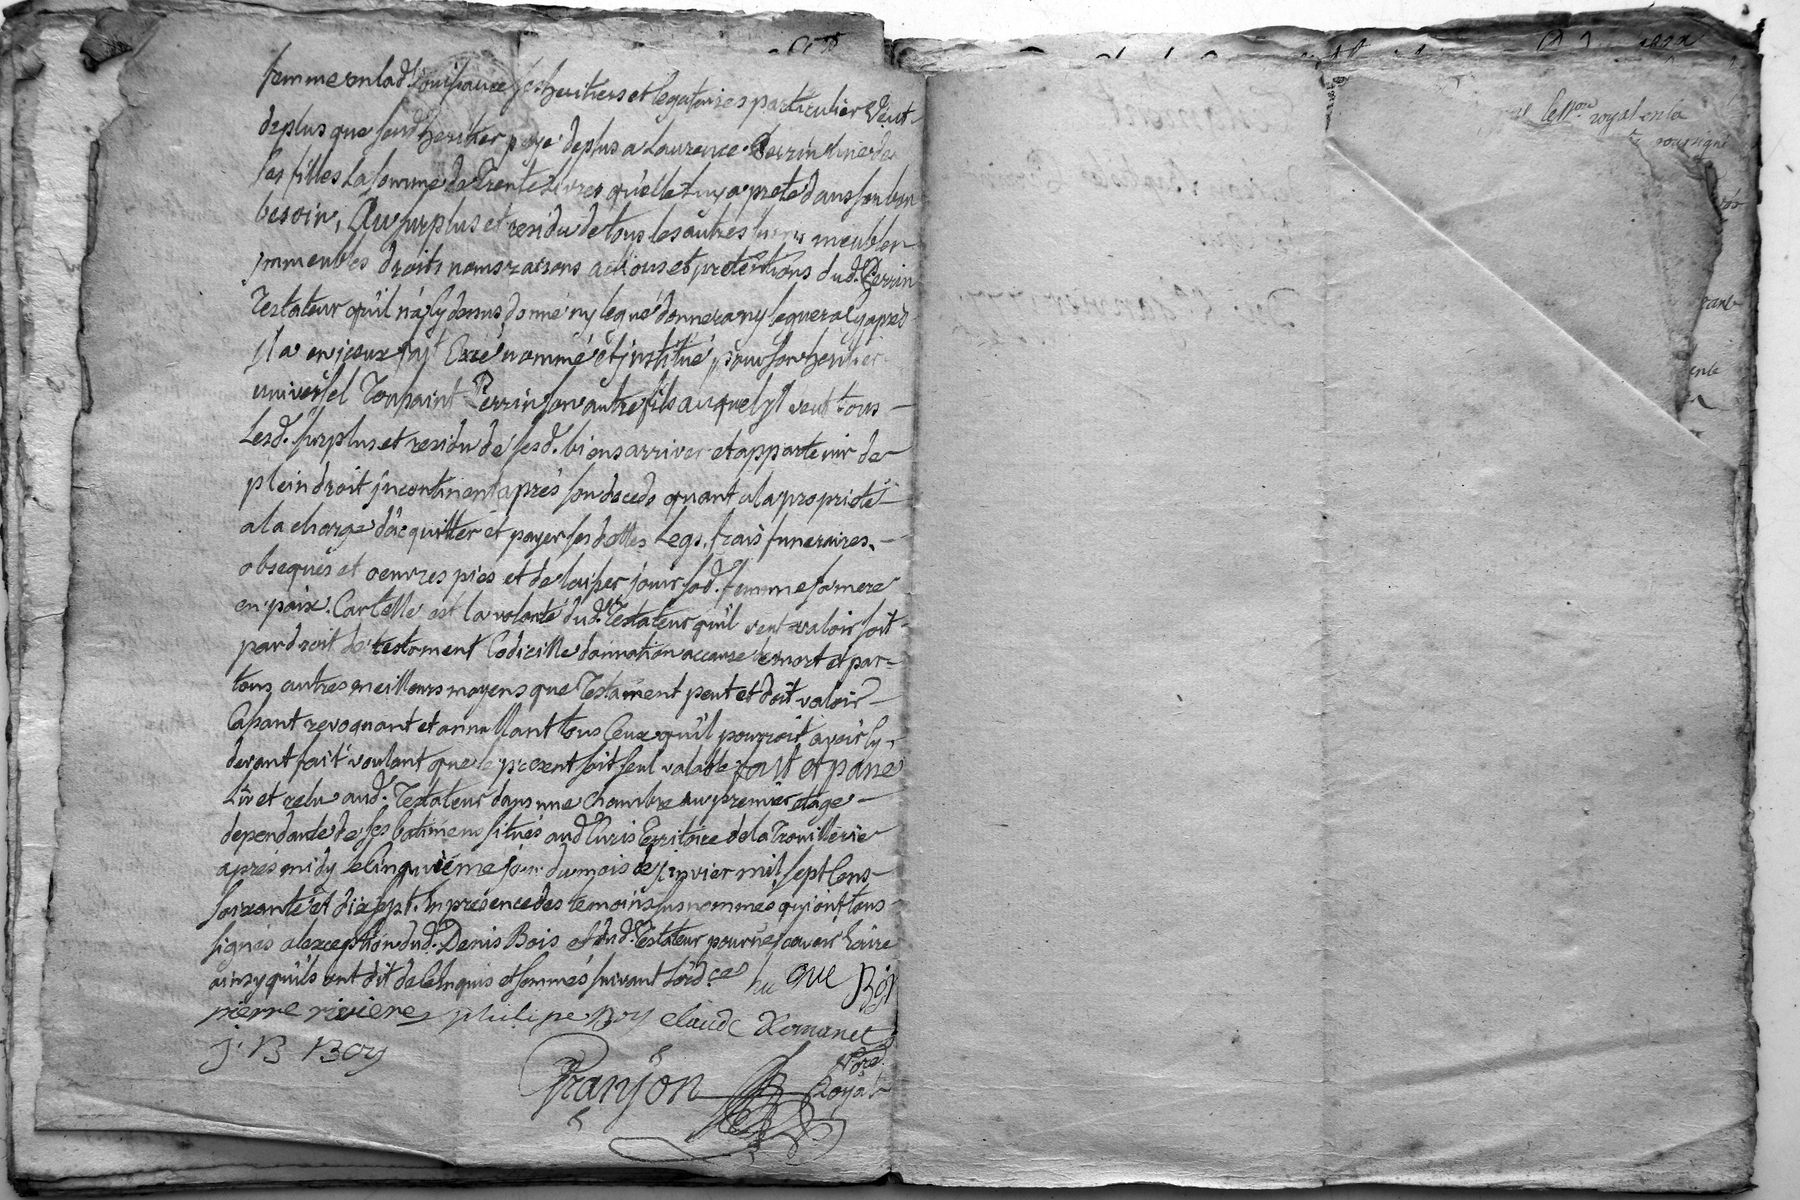 femme en lad. Jouissance ses heritiers et legataires particulier Veut
de plus que sond. heritier paye de plus a Laurence Perrin Une de
ses filles La somme de Trente Livres qu'elle Luy a preté dans son bon
besoin, Au surplus et residu de tous les autres biens meubles
jmmeubles droits noms raisons actions et pretentions dud. Perrin
Testateur qu'il n'a sy dessus donné ny legué donnera ny leguera Cy après
jl a en jceux fait Creé nommé et institué pour son heritier
universel Toussaint Perrin son autre fils auquel jl veut tous
Lesd. surplus et residu de sesd. biens arriver et appartenir de
plein droit jncontinent après son deceds quant a la propriete
a la charge d'acquitter et payer ses dettes Legs, frais funeraires,
obseques et oeuvres pies et de laisser jouir sad. femme sa mere
en paix. Car telle est la volonté dud. Testateur qu'il veut valoir soit
par droit de testament Codicille donnation a cause de mort et par
tous autres meilleurs moyens que Testament peut et doit valoir
Cassant revoquant et annullant tous Ceux qu'il pourroit avoir Cy
devant fait voulant que le present soit seul valable fait et passé
Lû et relu aud. Testateur dans une Chambre au premier etage
dependante de ses batimens situés aud. Curis Territoire de la Trouillerie
après midy le Cinquième jour du mois de janvier mil sept Cens
soixante et dix sept. En présence des temoins susnommés qui ont tous
signés a l'exception dud. Denis Bois et dud. Testateur pour ne scavoir Ecrire
ainsy qu'ils ont dit de Ce Enquis et sommés suivant L'ord.ce
pierre riviere philipe Boy claude Romanet
j. B Boy
Pranjon
Nore.
Royal
royal en la
soussigné